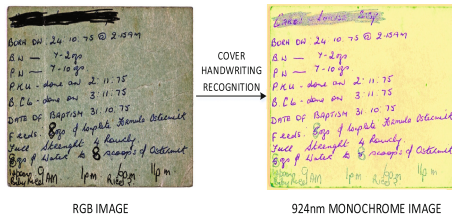 Carol Louise
BORN ON 24.10.75 @ 2.15AM
BW — 7-2ozs
PN — 7-10ozs
PKU - done on 2.11.75
B.CG - done on 3.11.75
DATE OF BAPTISM 31.10.75
Feeds. 8ozs of Complete Formula Ostermilk
Full Strength 4 hourly
8ozs of Water to 8 scoops of Ostermilk
9AM 1pm
COVER
HANDWRITING
RECOGNITION
BORN ON 24.10.75 @ 2.15AM
BW — 7-2ozs
PN — 7-10ozs
PKU - done on 2.11.75
B.CG - done on 3.11.75
DATE OF BAPTISM 31.10.75
Feeds. 8ozs of Complete Formula Ostermilk
Full Strength 4 hourly
8ozs of Water to 8 scoops of Ostermilk
9AM 1pm
RGB IMAGE
924nm MONOCHROME IMAGE